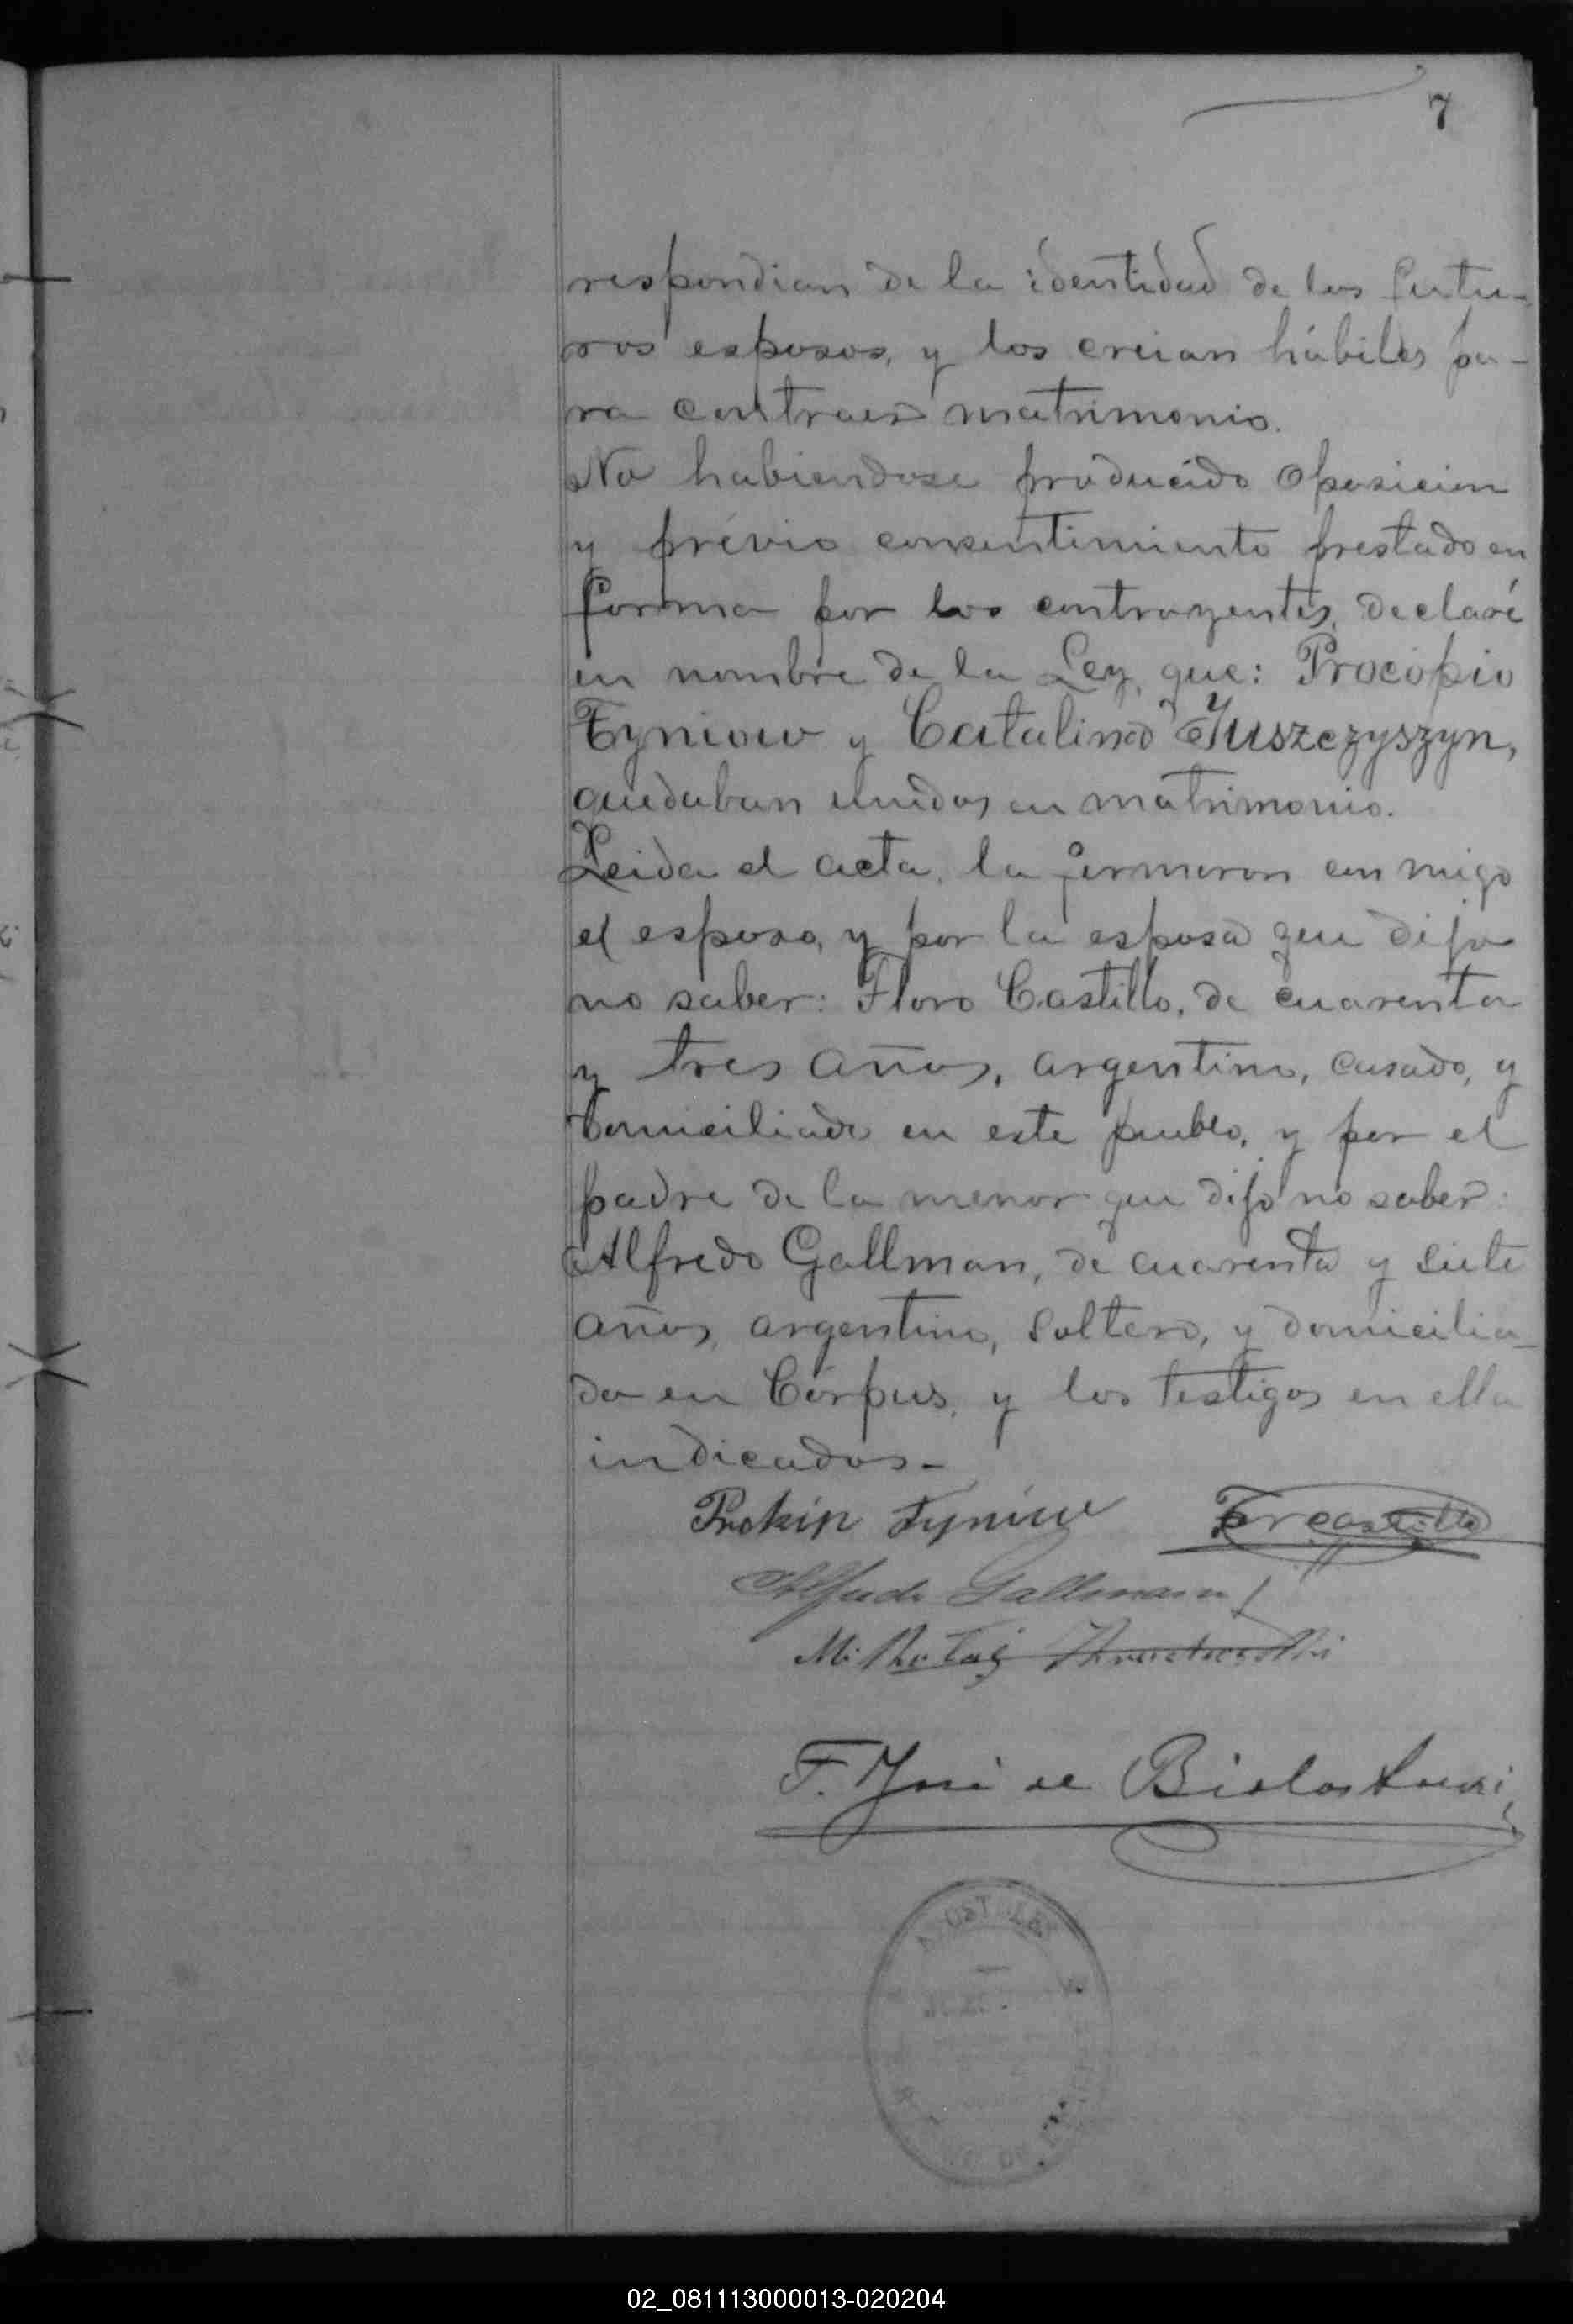 7
respondian de la identidad de los futu-
ros esposos, y los creian hábiles pa-
ra contraer matrimonio.
No habiendose producido oposicion
y prévio consentimiento prestado en
forma por los contrayentes, declaré
en nombre de la Ley, que: Procópio
Tyniow y Catalina Juszczyszyn,
quedaban unidos en matrimonio.
Leida el acta, la firmaron con migo
el esposo, y por la esposa que dijo
no saber: Floro Castillo, de cuarenta
y tres años, argentino, casado, y
domiciliado en este pueblo, y por el
padre de la menor que dijo no saber:
Alfredo Gallman, de cuarenta y siete
años, argentino, soltero, y domicilia-
do en Córpus, y los testigos en ella
indicados-
Prokip Tyniow
Castillo
Alfredo Gallmann
F. José de
02_081113000013-020204